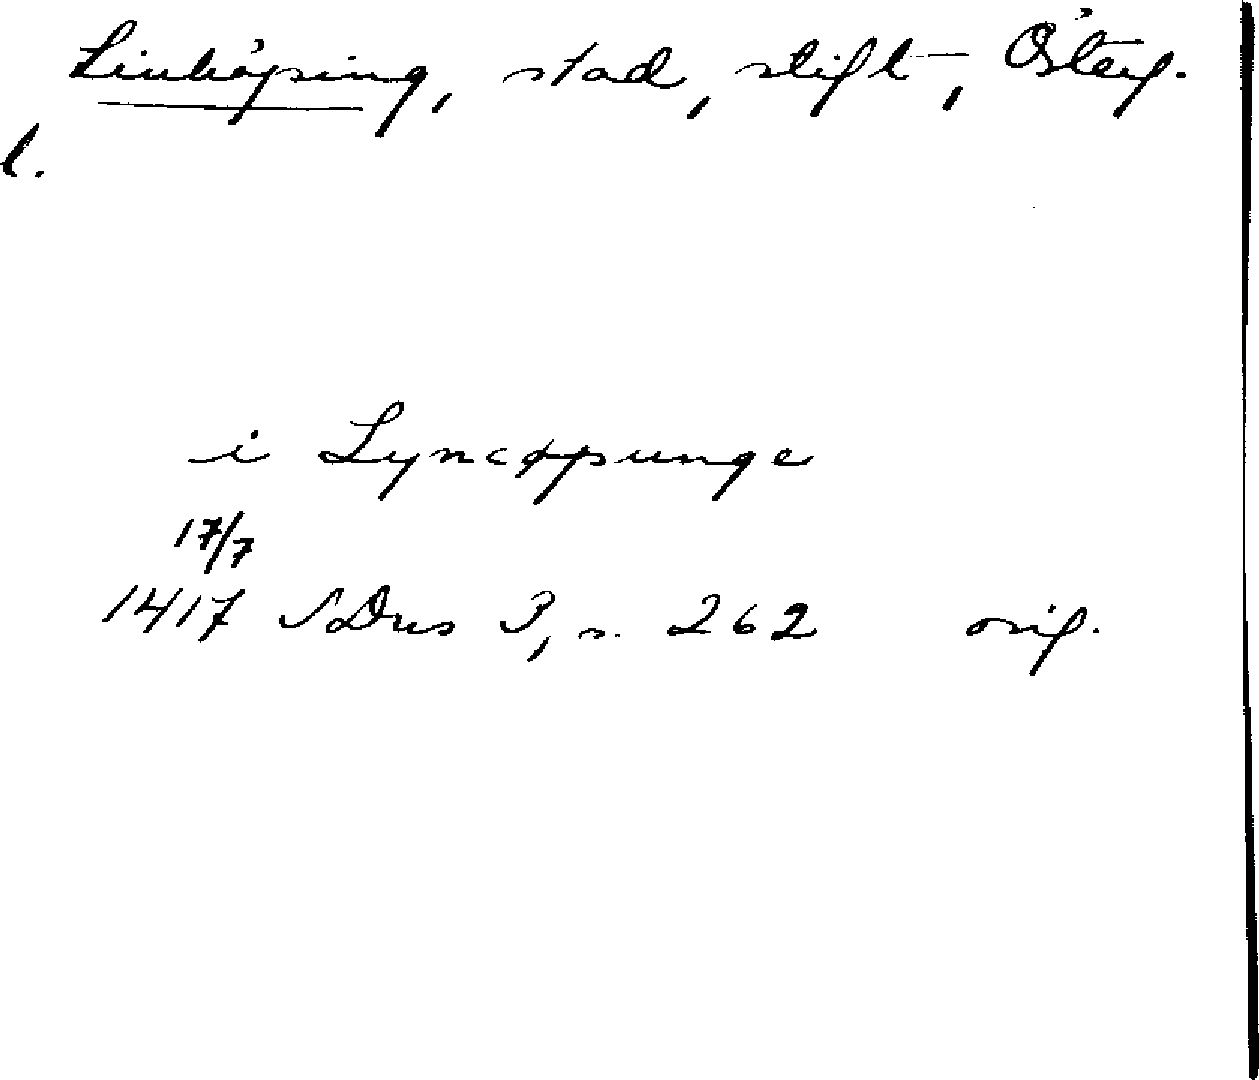 Linköping, stad, stift, Österg.
l.
i Lyncøpunge
17/7
1417 SDns 3, s. 262 orig.